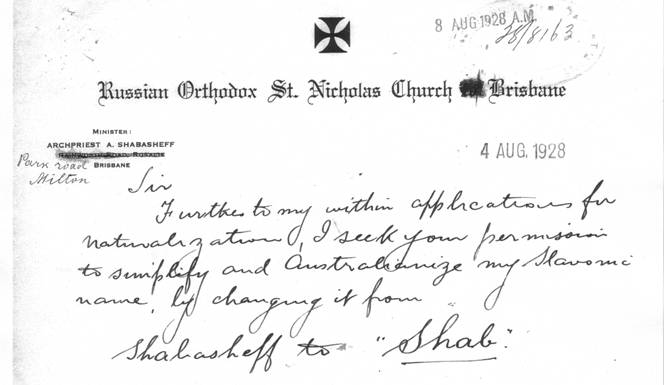 8 AUG 1928 A.M.
28/8163
Russian Orthodox St. Nicholas Church Brisbane
MINISTER:
ARCHPRIEST A. SHABASHEFF
BRISBANE
Park road
Milton
4 AUG. 1928
Sir
Further to my within applications for
naturalization, I seek your permission
to simplify and Australianize my Slavonic
name, by changing it from
Shabasheff to "Shab".